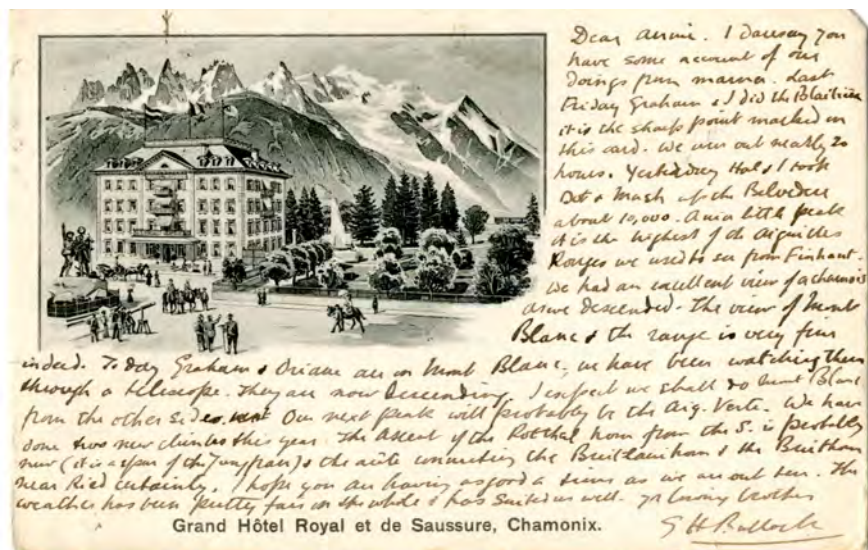 Dear Annie. I daresay you
have some account of our
doings from Mama. Last
Friday Graham & I did the Blaitière
it is the sharp point marked on
this card. We were out nearly 20
hours. Yesterday Hal & I took
Dot & up the Belvedere
about 10,000. a little peak
it is the highest of the Aiguilles
Rouges we used to see from Finhaut.
We had an excellent view of a chamois
as we descended. The view of Mont
Blanc & the range is very fine
indeed. Today Graham & are on Mont Blanc, we have been watching them
through a telescope. They are now descending. I expect we shall do Mont Blanc
from the other side. Our next peak will probably be the Aig. Verte. We have
done two new climbs this year. The Ascent of the Rotthal horn from the S. is probably
new (it is a spur of the Jungfrau) & the arête connecting the & the
near Ried certainly. I hope you are having as good a time as we are out here. The
weather has been pretty fair on the whole & has suited us well. yr loving brother
G H Bullock
Grand Hôtel Royal et de Saussure, Chamonix.